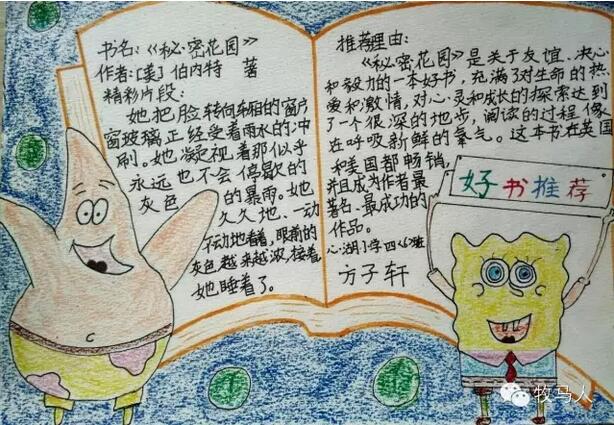 书名:《秘密花园》
作者:[美] 伯内特 著
精彩片段:
她把脸转向车厢的窗户
窗玻璃正经受着雨水的冲
刷。她凝视着那似乎
永远也不会停歇的
灰色的暴雨。她
久久地、一动
不动地看着,眼前的
灰色越来越浓,接着,
她睡着了。
推荐理由:
《秘密花园》是关于友谊、决心
和毅力的一本好书,充满了对生命的热
爱和激情,对心灵和成长的探索达到
了一个很深的地步,阅读的过程像
在呼吸新鲜的氧气。这本书在英国
和美国都畅销,
并且成为作者最
著名、最成功的
作品。
心湖小学四(6)班
方子轩
好书推荐
牧马人